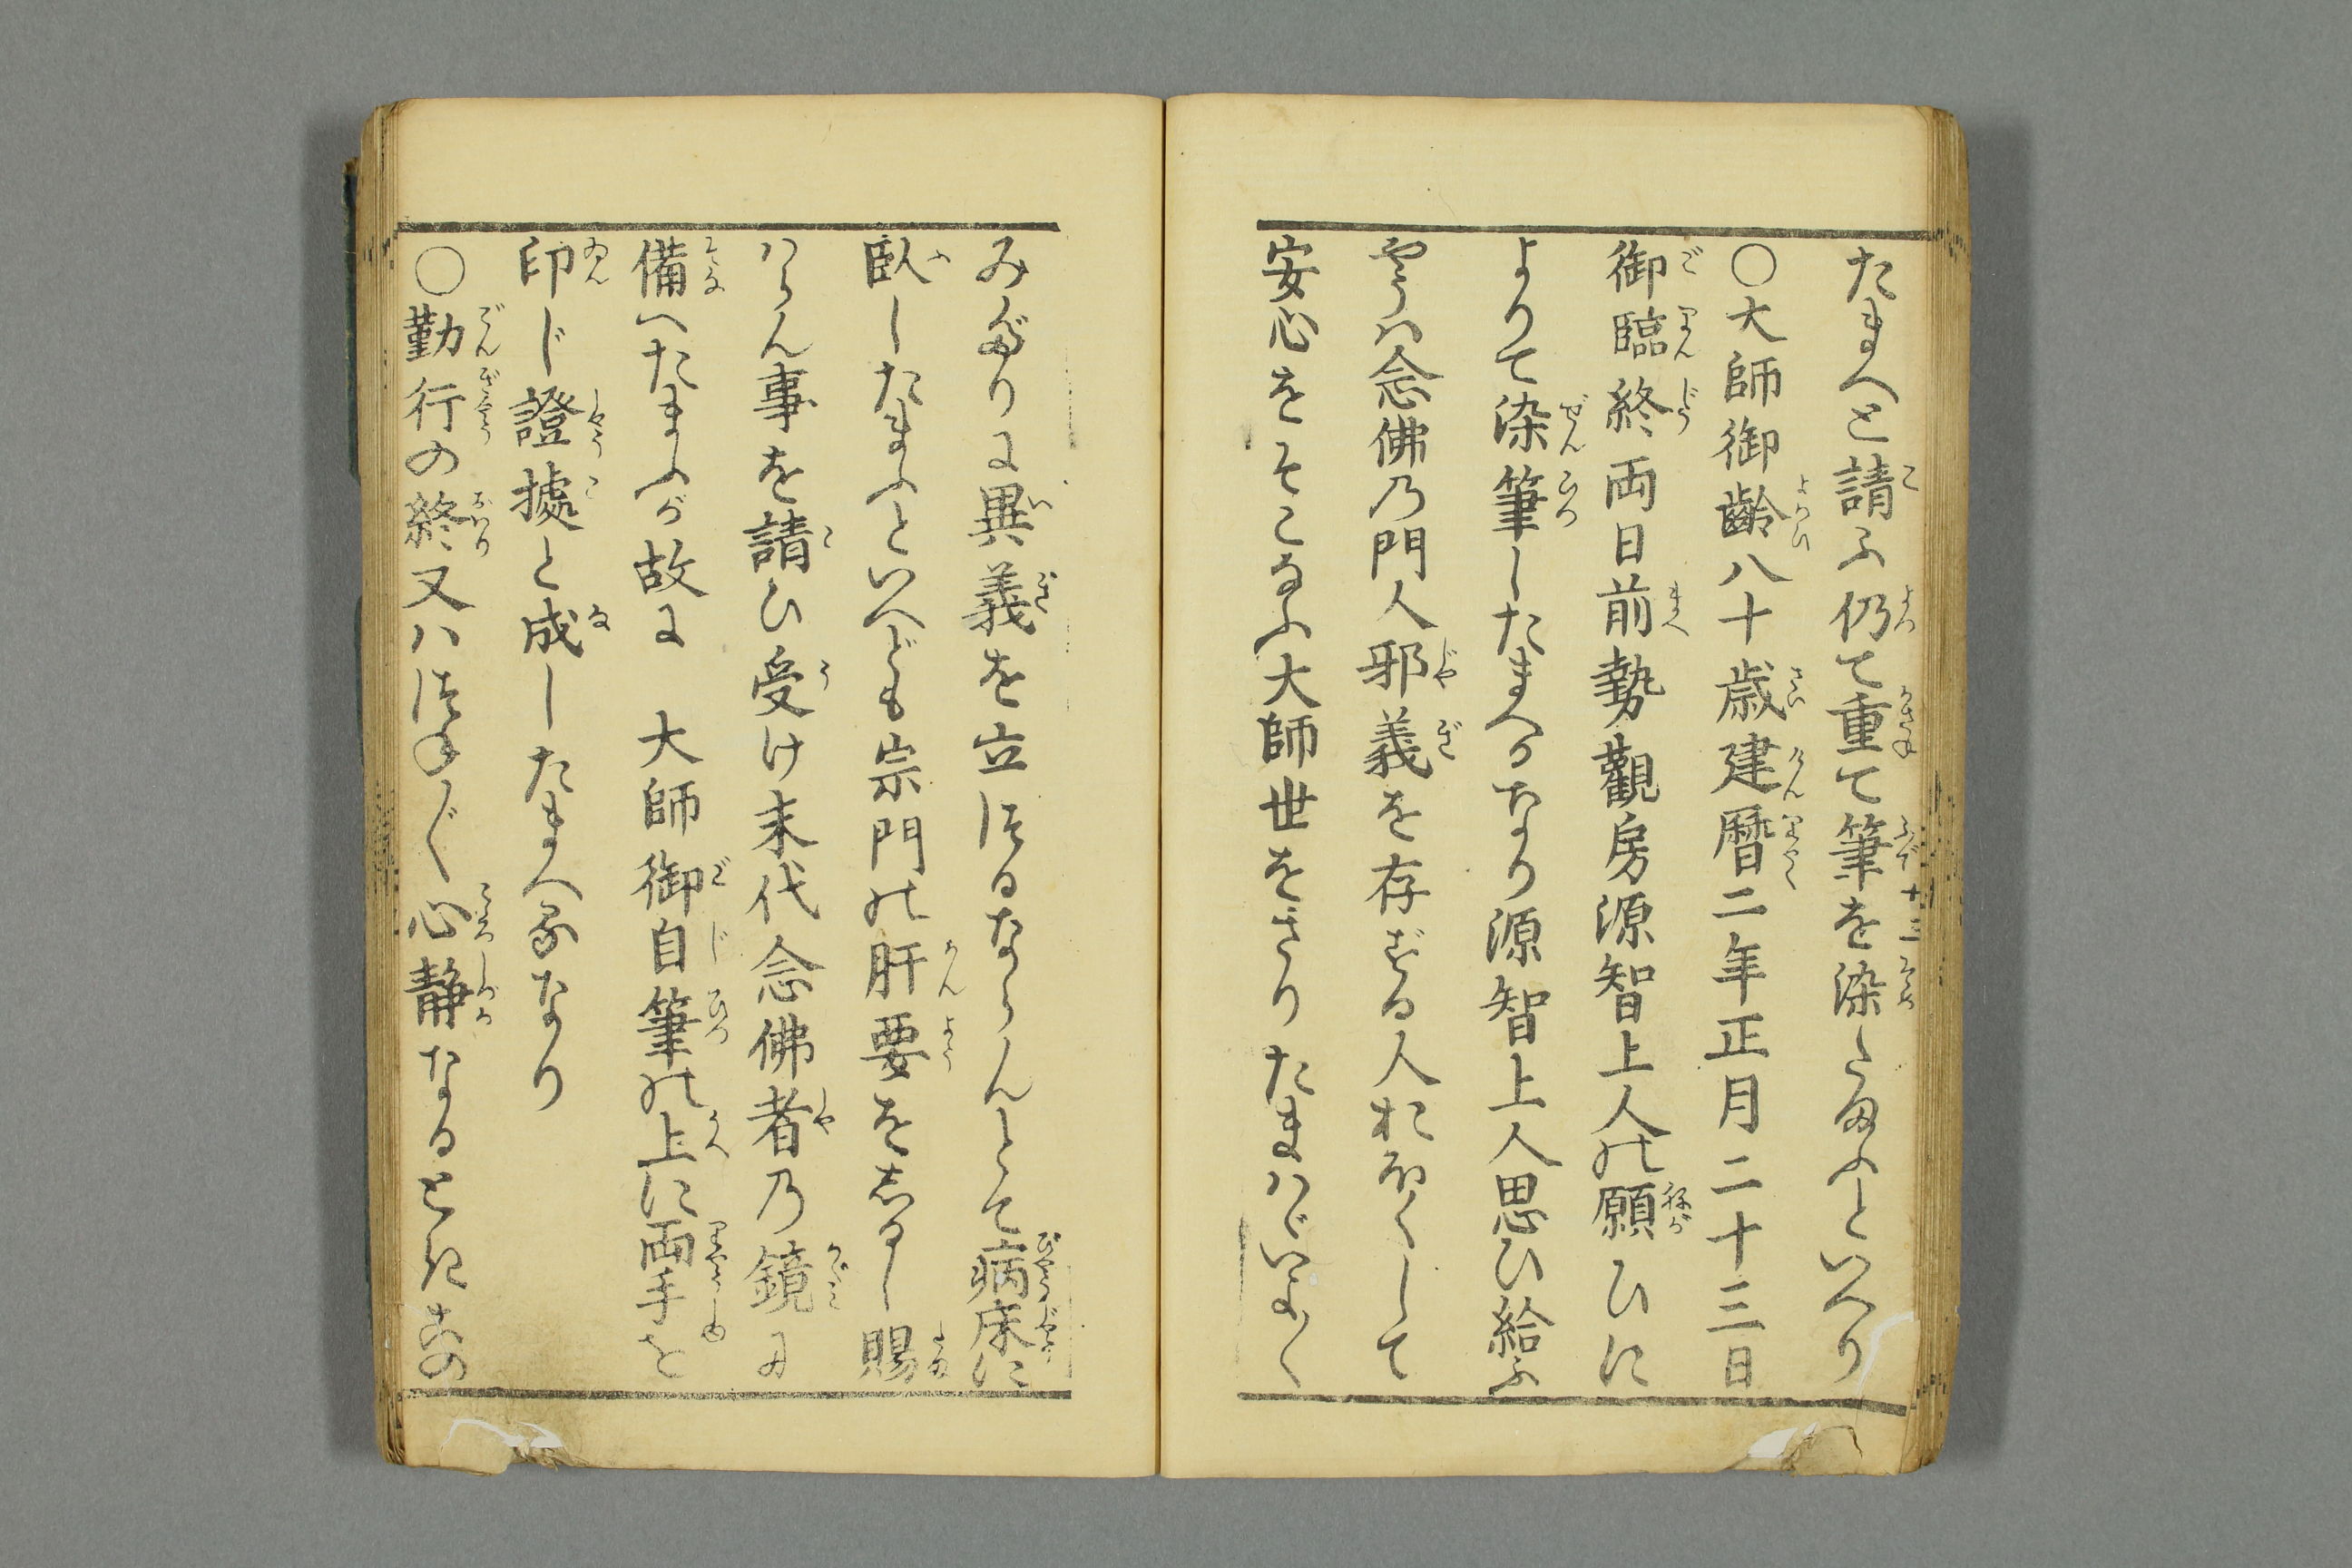 たまへと請ふ仍て重て筆を染たまふといへり
〇大師御齢八十歳建暦二年正月二十三日
御臨終両日前勢觀房源智上人の願ひに
よりて染筆したまへるなり源智上人思ひ給ふ
やうは念佛乃門人邪義を存ずる人おほくして
安心をそこなふ大師世をさりたまハゞいよ〱
みだりに異義を立つるならんとて病床に
臥したまふといへども宗門の肝要をしるし賜
ハらん事を請ひ受け末代念佛者乃鏡に
備へたまふが故に　大師御自筆の上に両手を
印じ證據と成したまへるなり
〇勤行の終又ハつね〲心静なるときこの